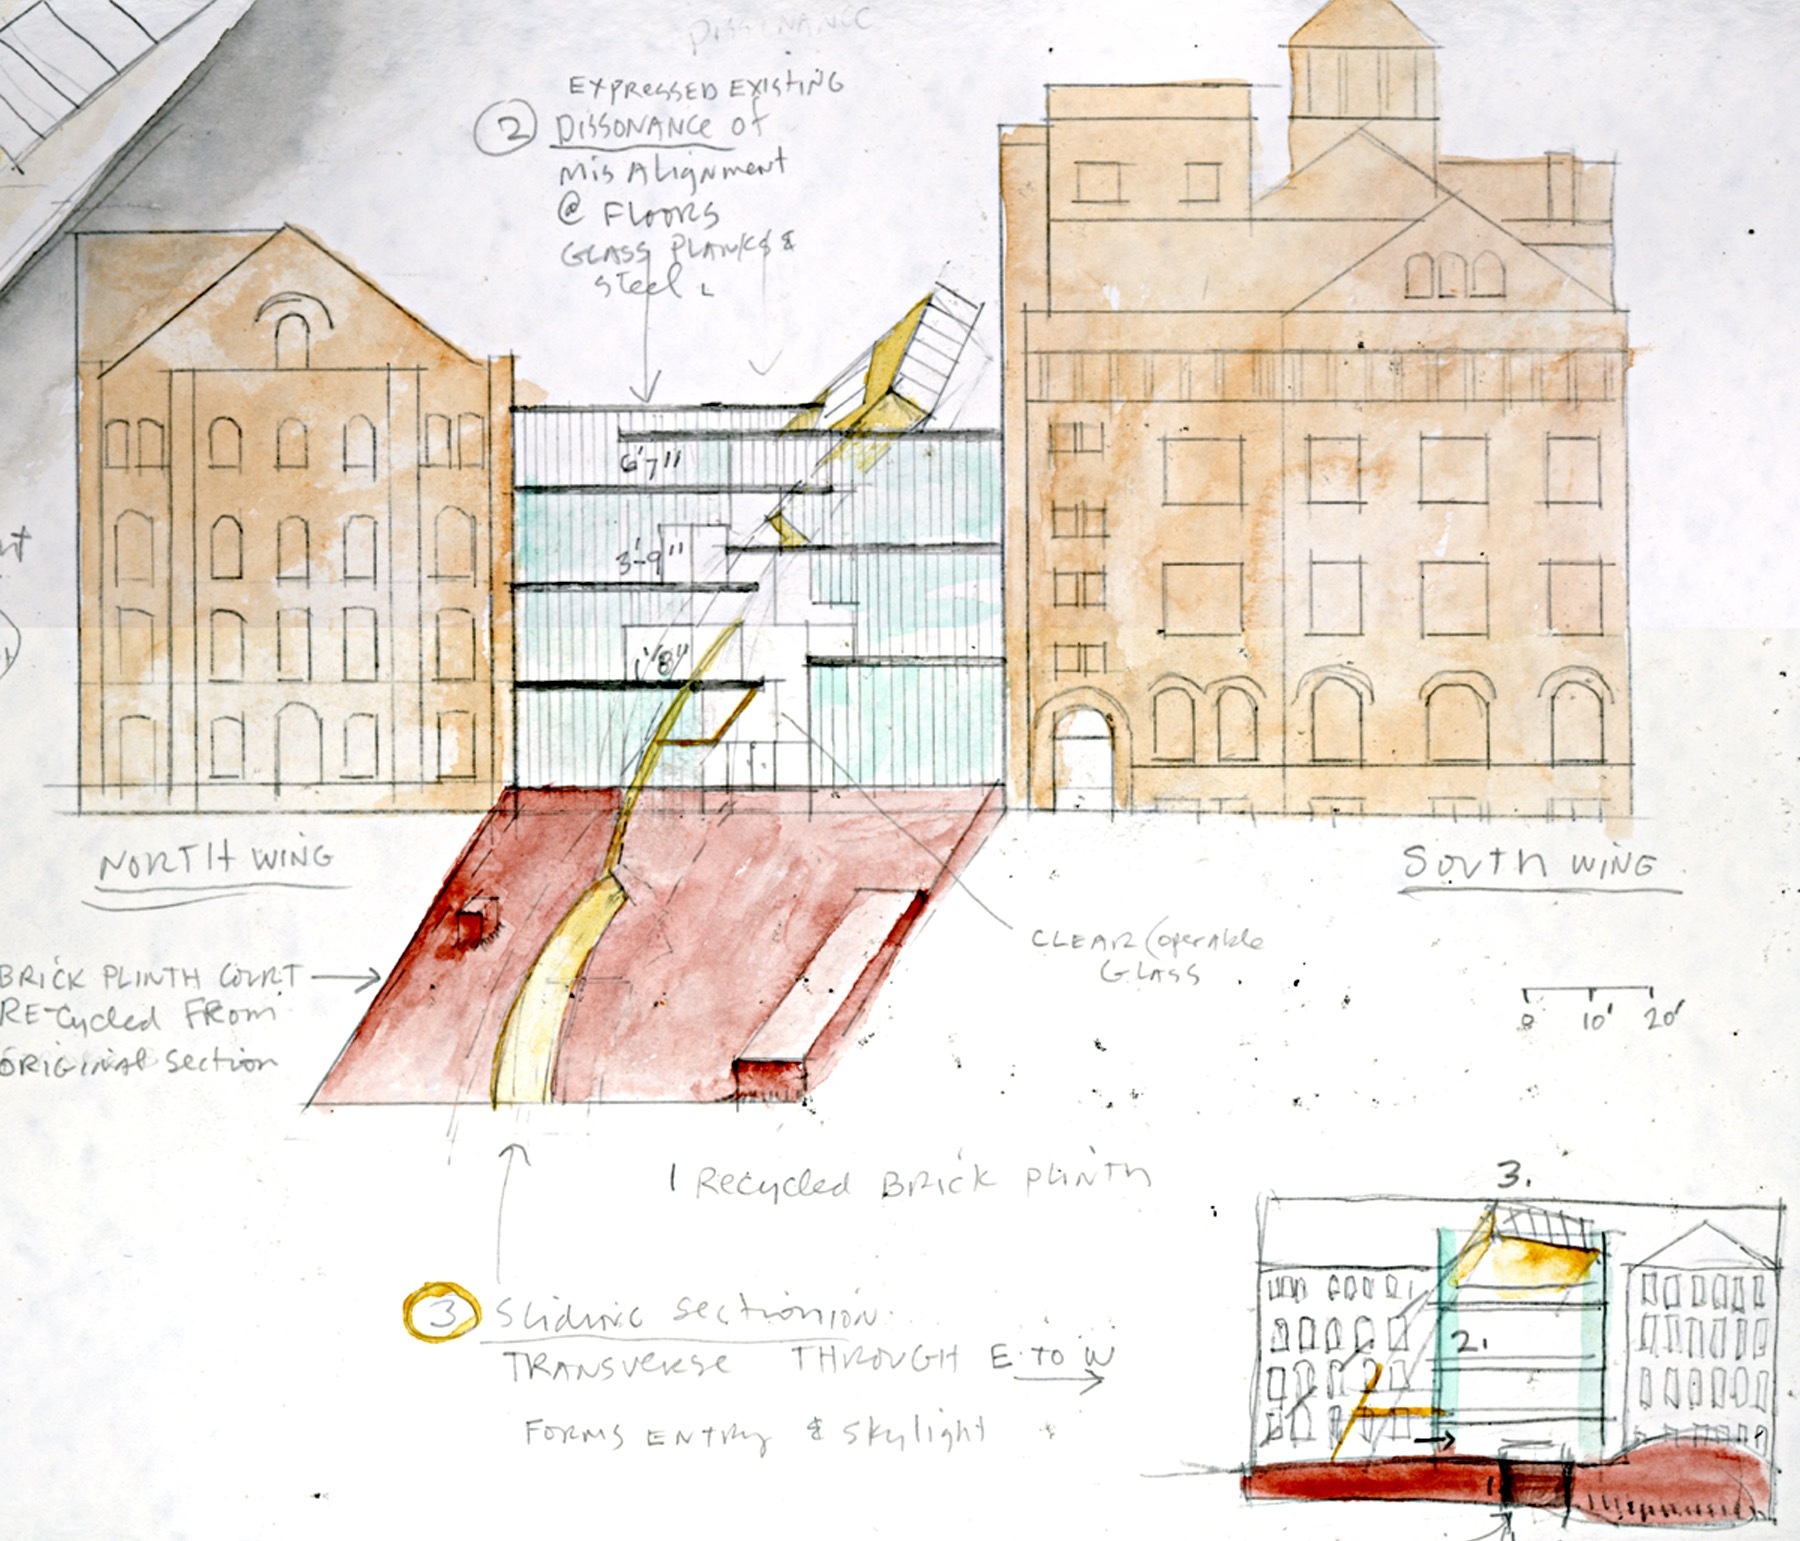 DISSONANCE
EXPRESSED EXISTING
2 DISSONANCE OF
MisALignment
@ FLOORS
GLASS PLANKS &
steel
6'7"
3'-9"
1'8"
NORTH WING
SOUTH WING
BRICK PLINTH COURT
RE-Cycled FROM
ORIGINAL Section
CLEAR/operable
GLASS
0 10' 20'
1 Recycled BRICK PLINTH
3 Sliding Sectionion
TRANSVERSE THROUGH E TO W
FORMS ENTRY & Skylight
3.
2.
1